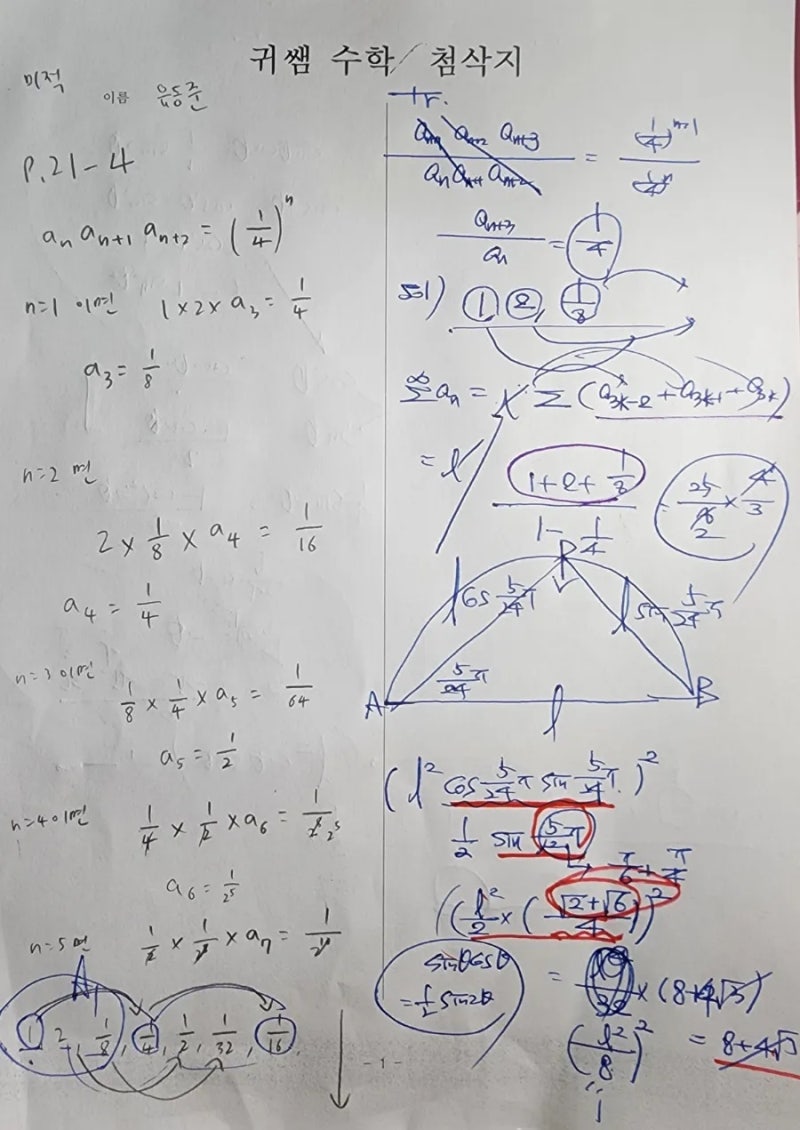 귀쌤 수학/ 첨삭지
미적
이름 윤동준
P.21-4
aₙ aₙ₊₁ aₙ₊₂ = (1/4)ⁿ
n=1 이면 1×2×a₃ = 1/4
a₃ = 1/8
n=2 면
2 × 1/8 × a₄ = 1/16
a₄ = 1/4
n=3 이면
1/8 × 1/4 × a₅ = 1/64
a₅ = 1/2
n=4 이면 1/4 × 1/2 × a₆ = 1/2⁸ 2⁵
a₆ = 1/2⁵
n=5 면 1/2 × 1/2⁵ × a₇ =
A
1, 2, 1/8, 1/4, 1/2, 1/32, 1/16,
tr.
aₙ₊₁ aₙ₊₂ aₙ₊₃ / aₙ aₙ₊₁ aₙ₊₂ = (1/4)ⁿ⁺¹ / (1/4)ⁿ
aₙ₊₃ / aₙ = 1/4
sol) 1, 2, 1/8
∞ Σ aₙ = Σ (a₃ₖ₋₂ + a₃ₖ₋₁ + a₃ₖ)
= l
(1+2+1/8) / (1 - 1/4) = 25/8 2 × 4/3
P
l cos 5/24 π
l sin 5/24 π
5/24 π
A
B
l
(l² cos 5/24 π sin 5/24 π)²
1/2 sin 5π/12
→ π/6 + π/4
(l²/2 × (√2+√6 / 4))²
sinθcosθ
= 1/2 sin2θ
= × (8+4√3)
(l²/8)² = 8+4√3
- 1 -